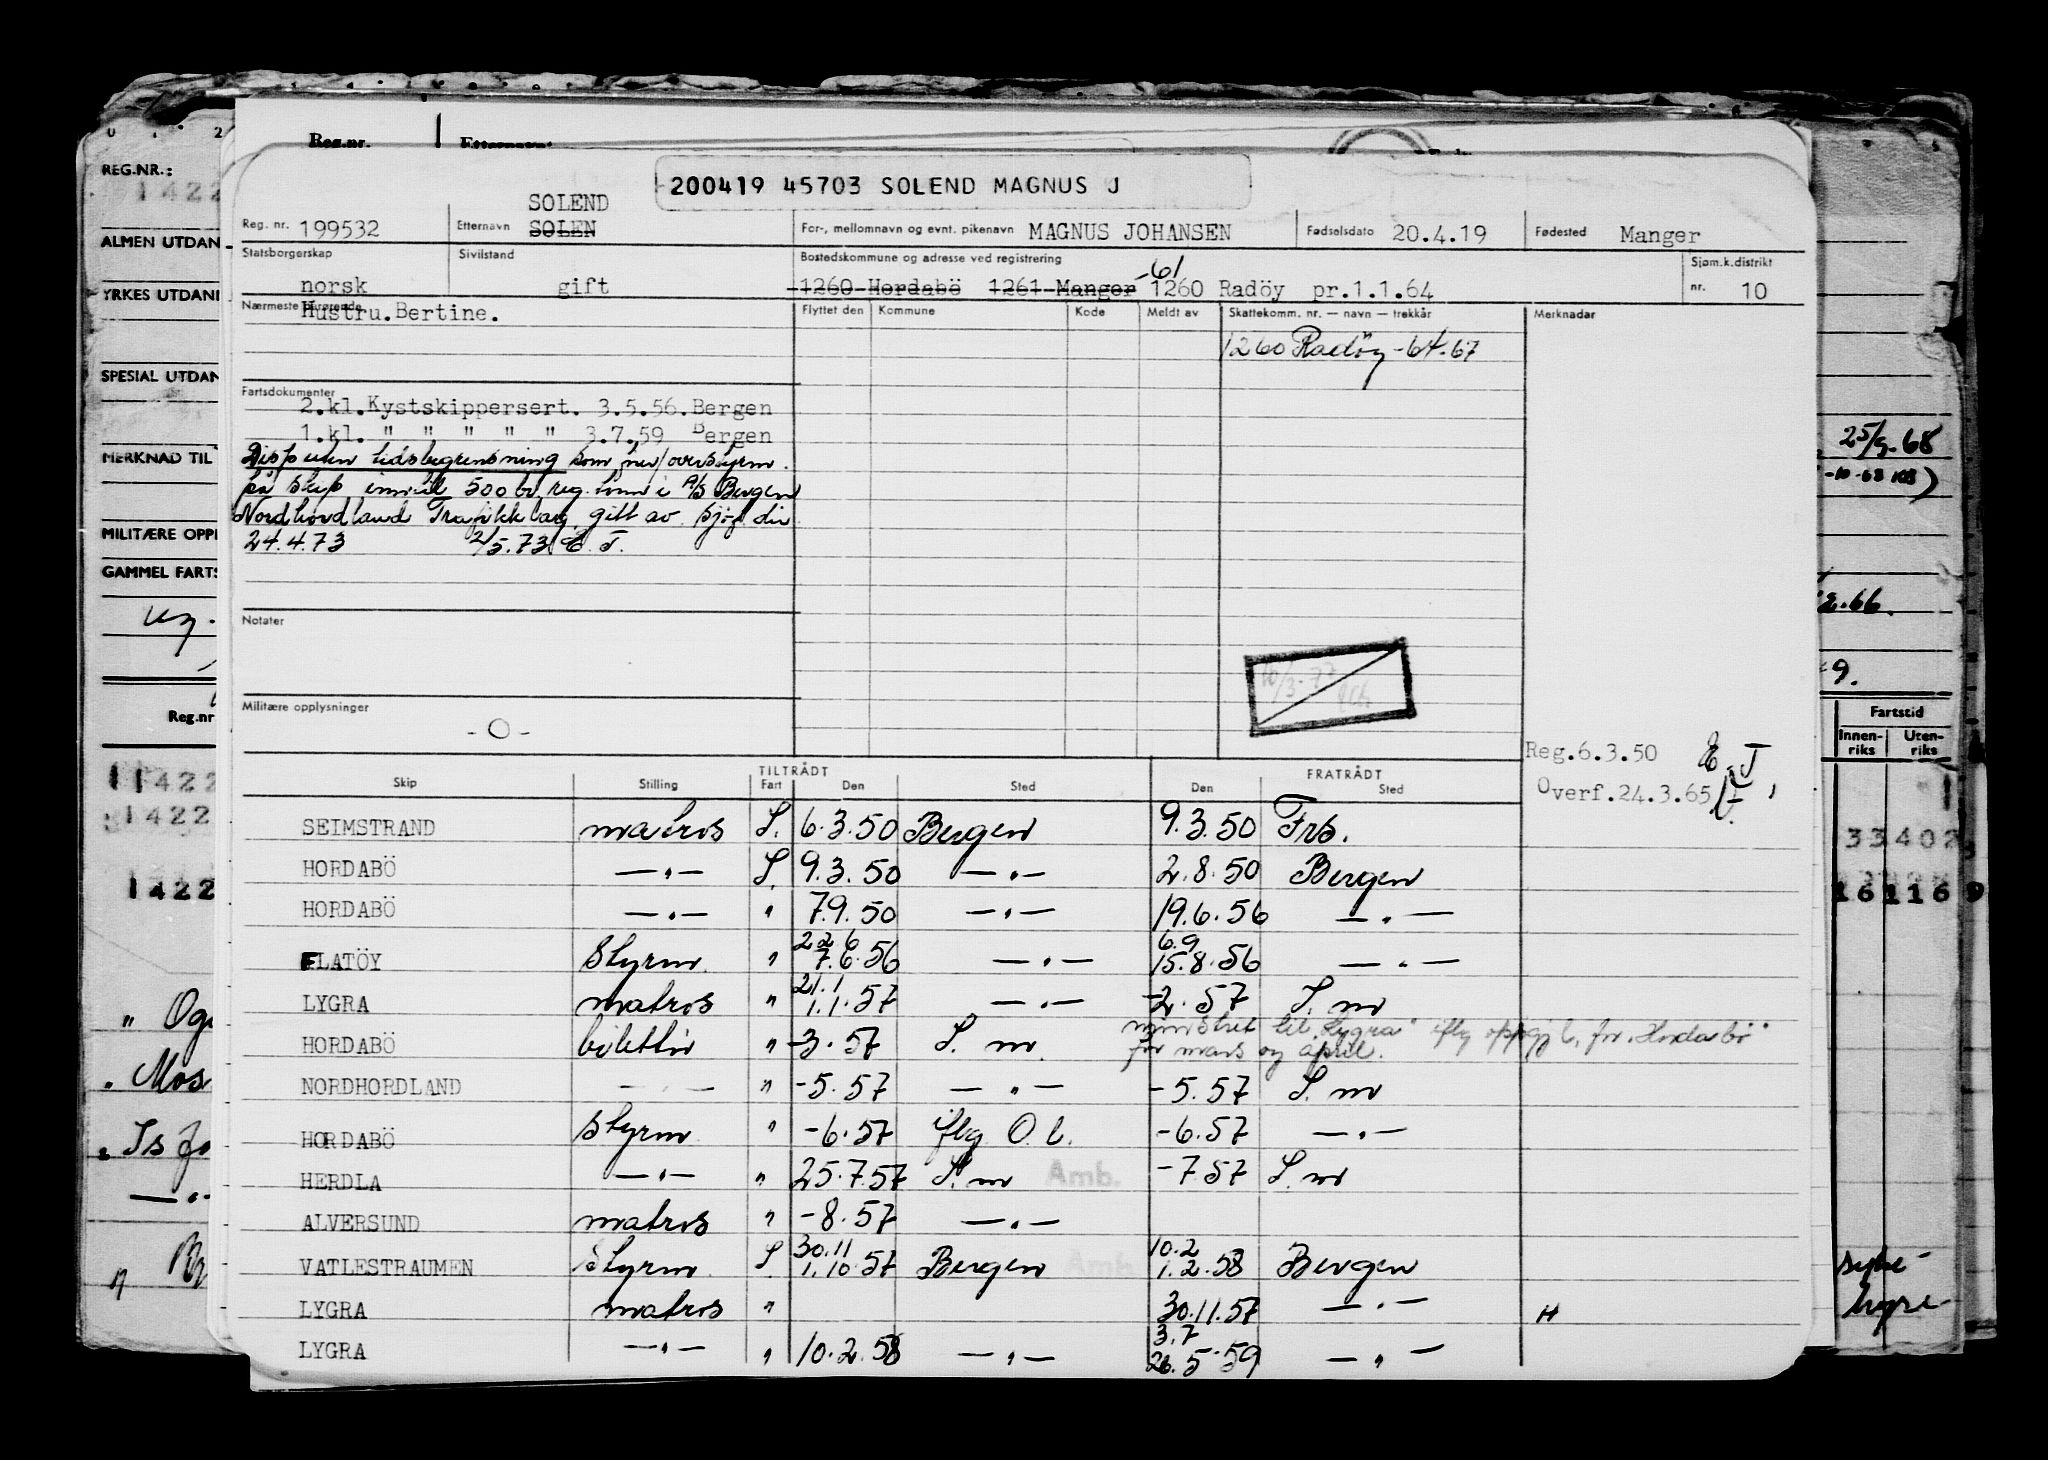 Reg.nr. Etternavn:
REG.NR.:
1422
ALMEN UTDAN
YRKES UTDAN
SPESIAL UTDAN
MERKNAD TIL
MILITÆRE OPPL
GAMMEL FARTS
Reg.nr
11422
1422
1422
" Og
. Mos
—„—
200419 45703 SOLEND MAGNUS J
SOLEND
Reg. nr. 199532 Etternavn SOLEN For-, mellomnavn og evnt. pikenavn MAGNUS JOHANSEN Fødselsdato 20.4.19 Fødested Manger
Statsborgerskap Sivilstand Bostedskommune og adresse ved registrering Sjøm.k.distrikt
-61
norsk gift 1260 Herdabö 1261 Manger 1260 Radöy pr.1.1.64 nr. 10
Nærmeste pårørende Hustru.Bertine. Flyttet den Kommune Kode Meldt av Skattekomm. nr. — navn — trekkår Merknadar
1260 Radöy -64-67
Fartsdokumenter
2.kl.Kystskippersert. 3.5.56.Bergen
1.kl. " " " " " 3.7.59 Bergen
Disp uten tidsbegrensning som nav/overstyrm.
på skip inntil 500 br. reg. tonn i A/S Bergen
Nordhordland Trafikklag, gitt av sjøf. dir
24.4.73 2/5.73 E. J.
Notater
Militære opplysninger
- O -
Reg.6.3.50 E. J
Overf.24.3.65
TILTRÅDT FRATRÅDT
Skip Stilling Fart Den Sted Den Sted
SEIMSTRAND matros S. 6.3.50 Bergen 9.3.50 Frb.
HORDABÖ —„— S. 9.3.50 —„— 2.8.50 Bergen
HORDABÖ —„— " 7.9.50 —„— 19.6.56 —„—
22 6 6.9
FLATÖY Styrm. " 7.6.56 —„— 15.8.56 —„—
21.1
LYGRA matros " 1.1.57 —„— -2.57 S. m
HORDABÖ billettör " -3.57 S. m. mönstret til "Lygra" iflg oppgj l. for "Hordabö"
for mars og april.
NORDHORDLAND —„— " -5.57 —„— -5.57 S. m
HORDABÖ Styrm. " -6.57 iflg. O. l. -6.57 —„—
HERDLA —„— " 25.7.57 S. m Amb. -7.57 S. m
ALVERSUND matros " -8.57 —„—
30.11 10.2
VATLESTRAUMEN Styrm. S. 1.10.57 Bergen Amb 1.2.58 Bergen
LYGRA matros " 30.11.57 —„— H
3.7
LYGRA —„— " 10.2.58 —„— 26.5.59 —„—
25/9-68
-10-68
2.66.
9.
Fartstid
Innen-riks Uten-riks
33402
161169
hyre